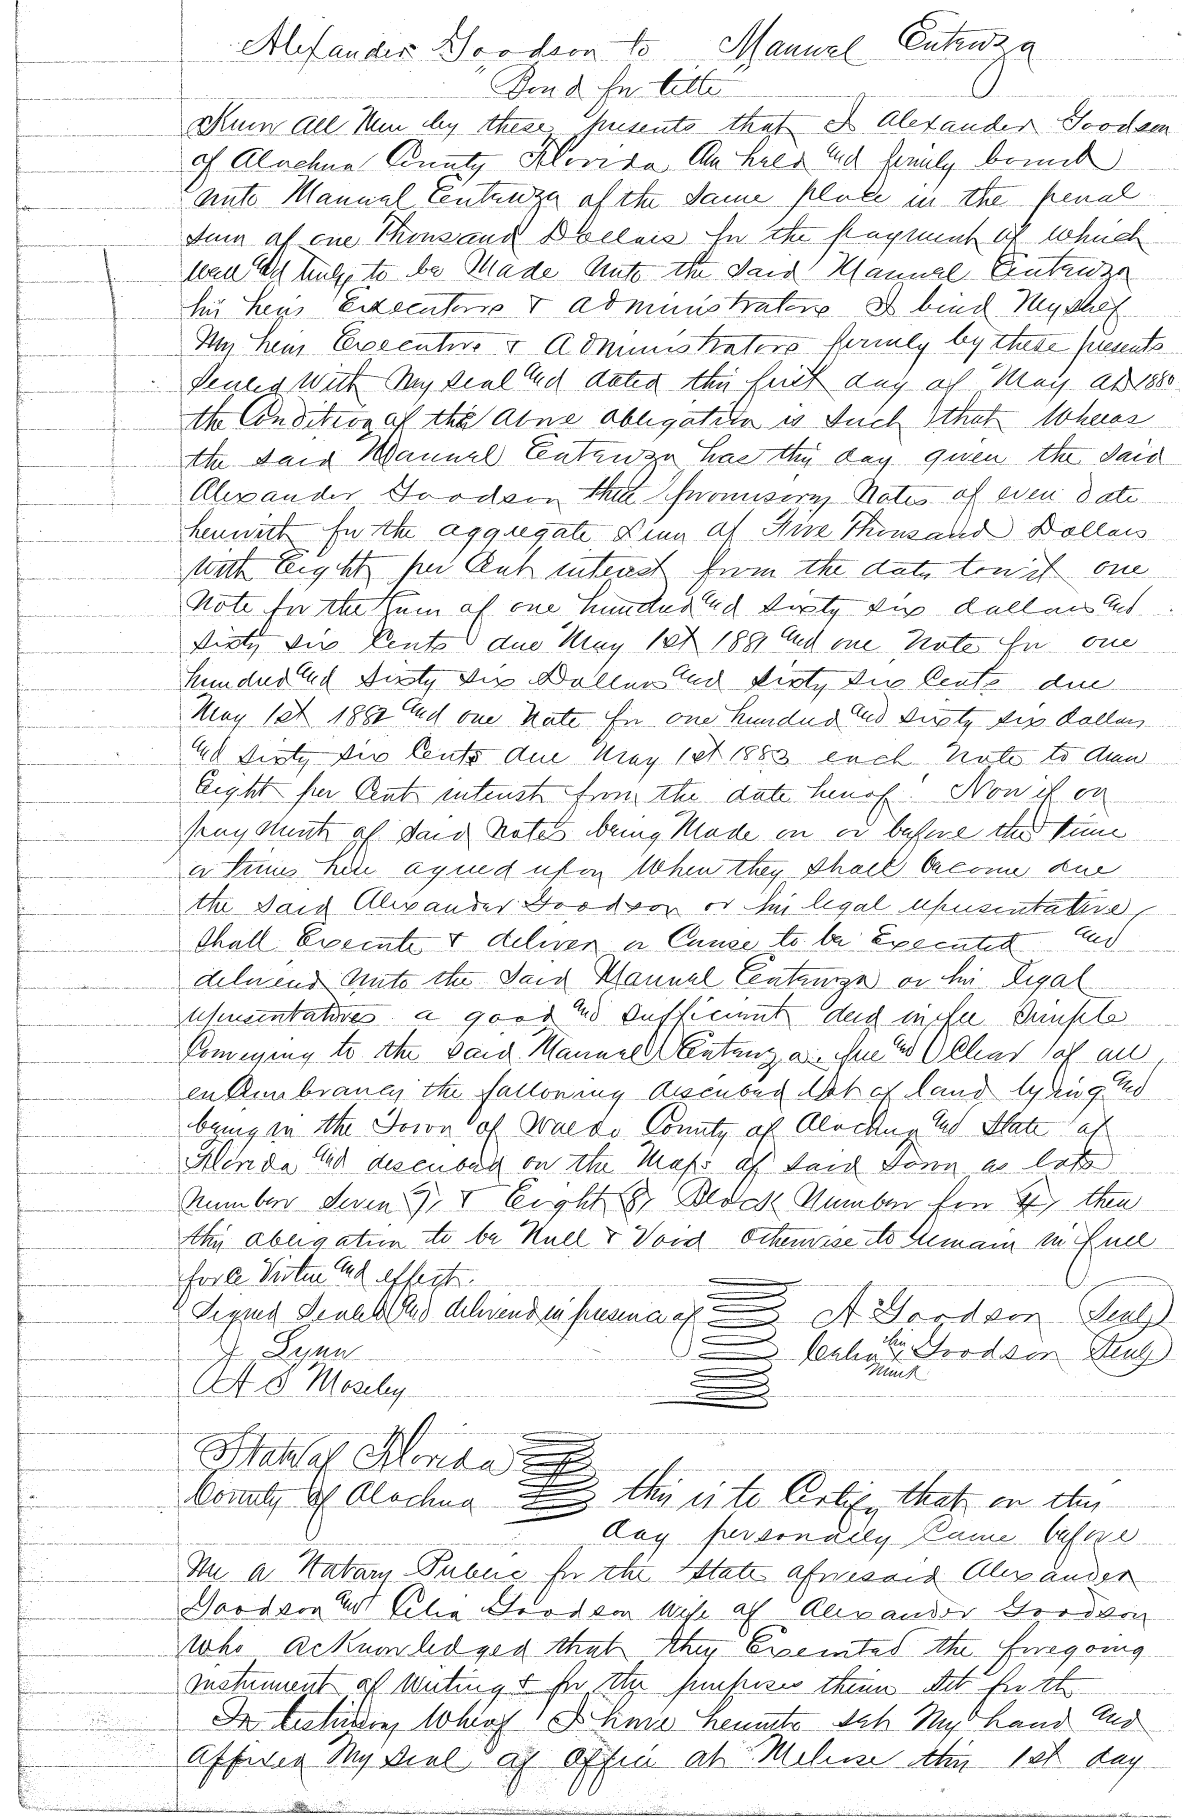 Alexander Goodson to Manual Entenza
"Bond for title"
Know all Men by these presents that I Alexander Goodson
of Alachua County Florida Am held and firmly bound
unto Manual Entenza of the Same place in the penal
Sum of one Thousand Dollars for the payment of which
well and truly to be Made Unto the Said Manual Entenza
his heirs Executors & administrators I bind Myself
My heirs Executors & Administrators firmly by these presents
Sealed With My seal and dated this first day of May AD 1880
the Condition of the above obligation is Such that Wheras
the Said Manual Entenza has this day given the Said
Alexander Goodson three promisory Notes of even date
herewith for the aggregate Sum of Five Thousand Dollars
with Eight per Cent interest from the date towit one
Note for the Sum of one hundred and Sixty Six dollars and
Sixty Six Cents due May 1st 1881 and one Note for one
hundred and Sixty Six Dollars and Sixty Six Cents due
May 1st 1882 and one Note for one hundred and Sixty Six dollars
and Sixty Six Cents due May 1st 1883 each Note to draw
Eight per Cent interest from the date hereof. Now if on
payment of Said Notes being Made on or before the time
or times here agreed upon When they Shall become due
the Said Alexander Goodson or his legal representative
Shall Execute & deliver or Cause to be Executed and
delivered Unto the Said Manual Entenza or his legal
representatives a good and Sufficient deed in fee Simple
Conveying to the Said Manual Entenza free and Clear of all
encumbrances the following described Lot of land lying and
being in the Town of Waldo County of Alachua and State of
Florida and described on the Map of Said Town as lots
Number Seven 7, & Eight 8, Block Number four 4, then
this obligation to be Null & Void otherwise to remain in full
force Virtue and effect.
Signed Sealed and delivered in presence of A Goodson Seal
J Lynn Celia his Goodson Seal
mark
A S Moseley
State of Florida
County of Alachua this is to Certify that on this
day personally Came before
Me a Notary Public for the State aforesaid Alexander
Goodson and Celia Goodson Wife of Alexander Goodson
Who Acknowledged that they Executed the foregoing
instrument of Writing & for the purposes therein Set forth
In testimony Wherof I have hereunto Set My hand and
Affixed My Seal of office at Melrose this 1st day